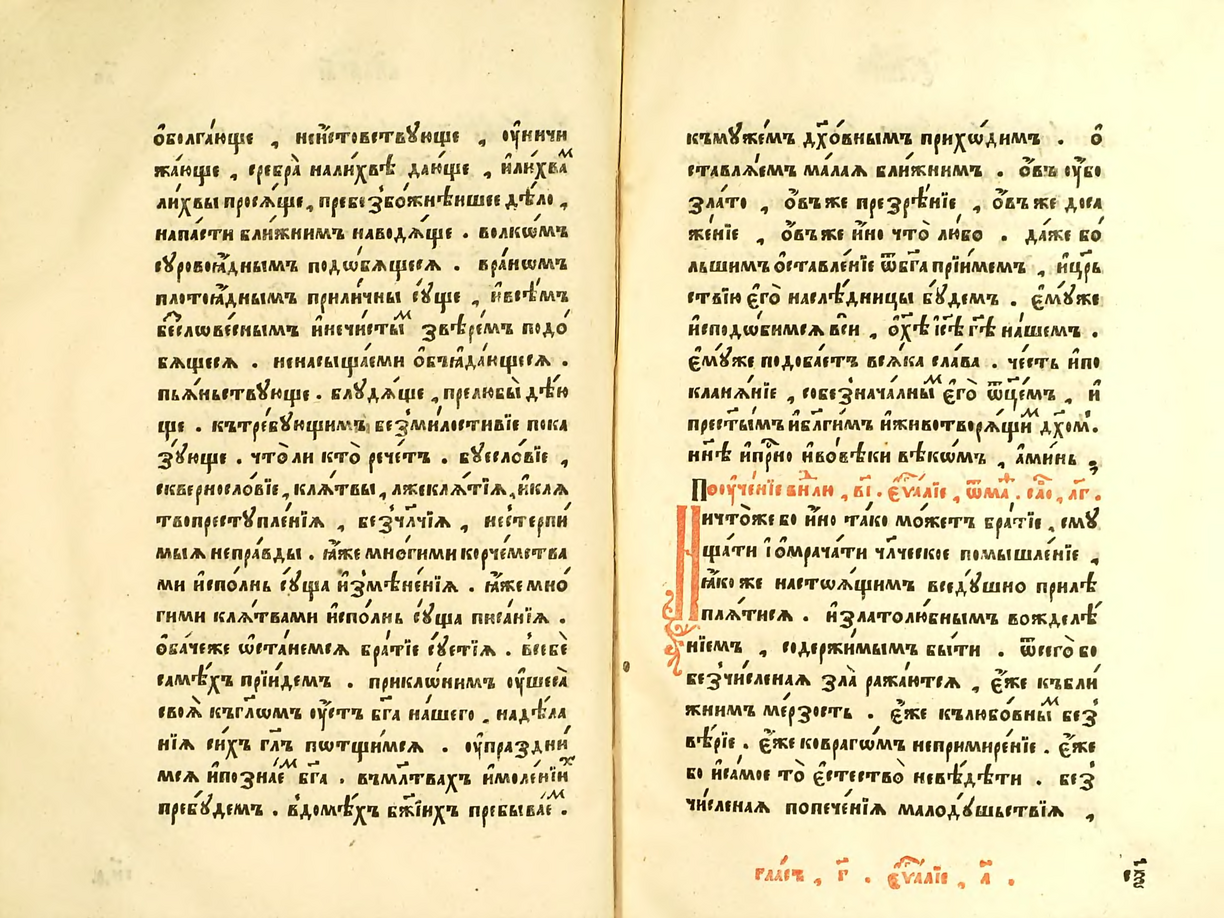 ѻ҆болга́юще , неи҆́стовствꙋюще , ᲂу҆ничи
жа́юще , сребра̀ налихвѣ̀ даю́ще , и҆лихваⷨ
ли́хвы прося́ще , пребезбо́жнѣишее дѣ́ло ,
напа́сти бли́жнимъ наводѧ́ще . во́лкѡмъ
сꙋровоꙗ́днымъ подѡ́бѧщесѧ . вра́нѡмъ
плотоꙗ́днымъ прили́чны сꙋ́ще , и҆все́мъ
бесло́ве́снымъ и҆нечи́стыⷨ звѣре́мъ подо́
бѧщесѧ . ненасыща́еми ѻ҆бъꙗда́ющесѧ .
пья́ньствꙋюще . блꙋдѧ́ще , прелюбы̀ дѣ́ю
ще . кътре́бꙋющимъ без̾ми́лостивїе пока
зꙋ́юще . что̀ ли кто̀ рече́тъ . бꙋесло́вїе ,
скверносло́вїе , клѧ́твы , лжеклѧ́тїѧ , и҆клѧ
твопрестꙋпле́нїѧ , без̾чл҃чїѧ , несте́рпи
мыѧ непра́вды . ꙗ҆́же мно́гими корче́мства
ми и҆спо́лнь сꙋ́ща и҆змѣне́нїѧ . ꙗ҆́же мно́
гими клѧ́твами и҆спо́лнь сꙋ́ща писа́нїѧ .
ѻ҆ба́чеже ѡ҆ста́немсѧ бра́тїе сꙋетїѧ . всебѐ
самѣ́хъ прїи́демъ . приклѡ́нимъ ᲂу҆шеса̀
своѧ̀ къгл҃ѡмъ ᲂу҆́стъ бг҃а на́шего , надѣ́ла
нїѧ си́хъ гл҃ъ потщи́мсѧ . ᲂу҆праздни́
мсѧ и҆позна́еⷨ бг҃а . въмл҃твахъ и҆моле́нїиⷯ
пребꙋ́демъ . вдомѣ́хъ бж҃їихъ пребыва́еⷨ .
къмꙋже́мъ дх҃о́внымъ прихѡ́димъ . ѻ҆
ставлѧ́емъ ма́лаѧ бли́жнимъ . ѻ҆́въ ᲂу҆́бо
зла́то , ѻ҆́въже презрѣ́нїе , ѻ҆́въже доса
же́нїе , ѻ҆́въже и҆́но что̀ лю́бо . да́же бо́
льшимъ ѻ҆ставле́нїе ѿбг҃а прїи́мемъ , и҆цр҃ь
ствїю є҆гѡ̀ наслѣ́дницы бꙋ́демъ . є҆мꙋ́же
и҆сподѡ́бимсѧ вси̂ , ѻ҆хѣ҃ і҆сѣ҃ гд҃ѣ на́шемъ .
є҆мꙋ́же подоба́етъ всѧ́ка сла́ва . че́сть и҆по
кланѧ́нїе , собезнача́лныⷨ є҆го̀ ѿц҃емъ , и҆
прест҃ы́мъ и҆бл҃ги́мъ и҆животворѧ́щиⷨ дх҃омⷨ .
нн҃ѣ и҆прⷭ҇но и҆вовѣ́ки вѣ́кѡмъ , а҆ми́нь ,
Поᲂуче́нїе внлю , в҃і . є҆ѵⷢ҇а́лїе , ѿмⷶ . саⷧ҇о , л҃г .
Ничто́же бо и҆́но та́ко мо́жетъ бра́тїе , смꙋ
ща́ти і҆ѻмрача́ти чл҃ческое помышле́нїе ,
ꙗ҆́коже настѡѧ́щимъ вседꙋ́шно прилѣ
плѧ́тисѧ . и҆златолю́бнымъ вожделѣ́
нїемъ , содержи́мымъ бы́ти . ѿсего̀ бо
без̾чи́сленаѧ зла̀ ража́ютсѧ , є҆́же къбли́
жнимъ ме́рзость . є҆́же кълюбо́вныⷨ без̾
вѣ́рїе . є҆́же коврагѡ́мъ непримире́нїе . є҆́же
бо и҆само́е то̀ є҆стество̀ невѣ́дѣти . без̾
чи́сленаѧ попече́нїѧ малодꙋ́шьствїѧ ,
гла́съ , г҃ . є҆ѵⷢ҇а́лїе , а҃ .
сѯ҃